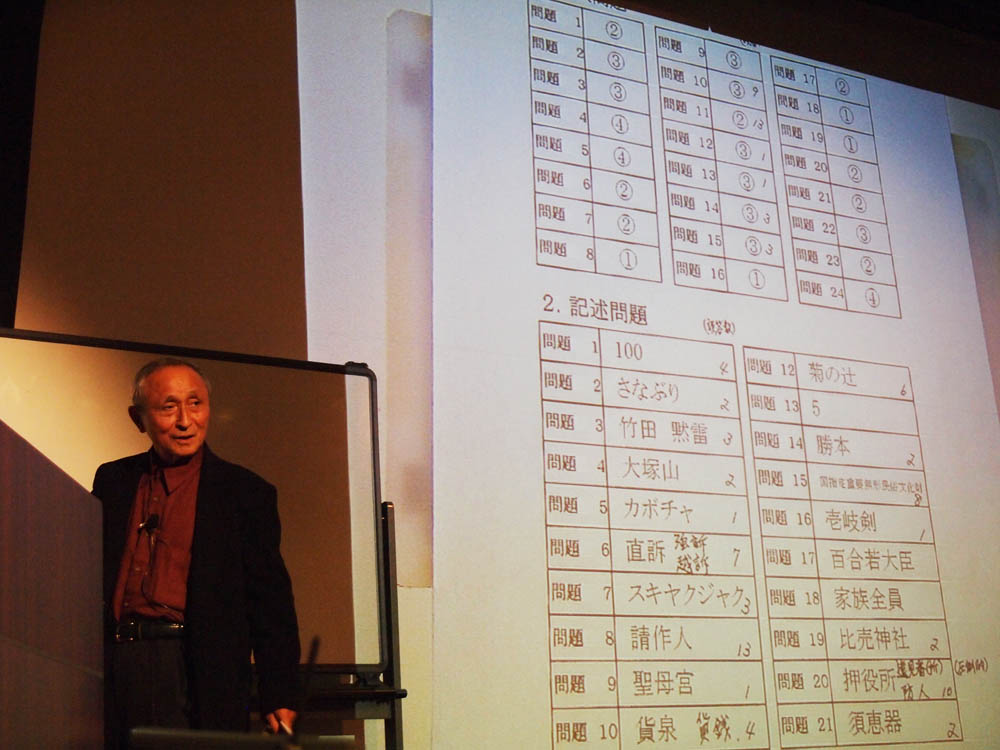 問題 1 ②
問題 2 ③
問題 3 ③
問題 4 ④
問題 5 ④
問題 6 ②
問題 7 ②
問題 8 ①
問題 9 ③
問題 10 ③ 9
問題 11 ② 13
問題 12 ③ 1
問題 13 ③ 1
問題 14 ③ 3
問題 15 ③ 3
問題 16 ①
問題 17 ②
問題 18 ①
問題 19 ①
問題 20 ②
問題 21 ②
問題 22 ③
問題 23 ②
問題 24 ④
2. 記述問題
問題 1 100 4
問題 2 さなぶり 2
問題 3 竹田 黙雷 3
問題 4 大塚山 2
問題 5 カボチャ 1
問題 6 直訴 強訴 越訴 7
問題 7 スキヤクジャク 3
問題 8 請作人 13
問題 9 聖母宮 1
問題 10 貨泉 貨銭 4
問題 12 菊の辻 6
問題 13 5
問題 14 勝本 2
問題 15 国指定重要無形民俗文化財 8
問題 16 壱岐剣 1
問題 17 百合若大臣
問題 18 家族全員
問題 19 比売神社 2
問題 20 押役所 遠見番(所) 防人 10
問題 21 須恵器 2